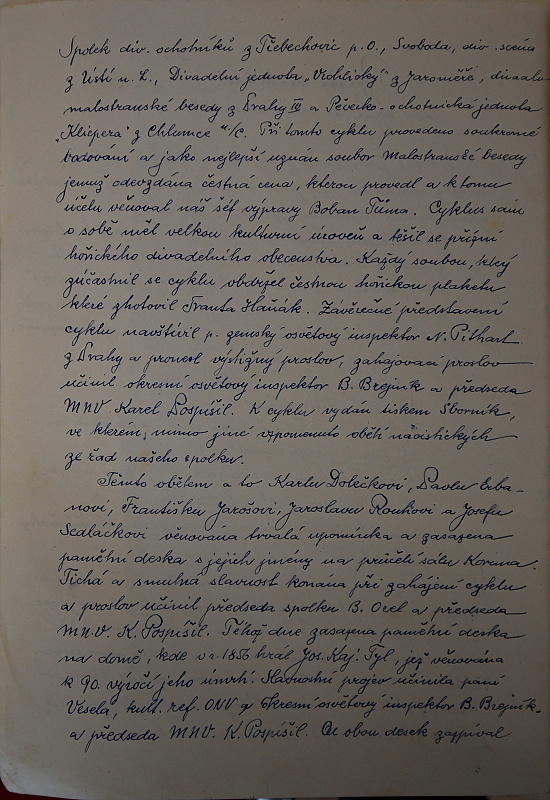 Spolek div. ochotníků z Třebechovic p. O., Svoboda, div. scéna
z Ústí n. L., Divadelní jednota „Vrchlický" z Jaroměře, divadlo
malostranské besedy z Prahy III a Pěvecko-ochotnická jednota
„Klicpera" z Chlumce n/C. Při tomto cyklu provedeno soukromé
bodování a jako nejlepší uznán soubor Malostranské besedy
jemuž odevzdána čestná cena, kterou provedl a k tomu
účelu věnoval náš šéf výpravy Boban Tůma. Cyklus sám
o sobě měl velkou kulturní úroveň a těšil se přízni
hořického divadelního obecenstva. Každý soubor, který
zúčastnil se cyklu obdržel čestnou hořickou plaketu
které zhotovil Franta Haňák. Závěrečné představení
cyklu navštívil p. zemský osvětový inspektor N. Pithart
z Prahy a pronesl výstižný proslov, zahajovací proslov
učinil okresní osvětový inspektor B. Brejník a předseda
MNV Karel Pospíšil. K cyklu vydán tiskem Sborník,
ve kterém, mimo jiné vzpomenuto obětí nacistických
ze řad našeho spolku.
Těmto obětem a to Karlu Dolečkovi, Pavlu Erba-
novi, Františku Jarošovi, Jaroslavu Roukovi a Josefu
Sedláčkovi věnována trvalá upomínka a zasazena
pamětní deska s jejich jmény na průčelí sálu Koruna.
Tichá a smutná slavnost konána při zahájení cyklu
a proslov učinil předseda spolku B. Orel a předseda
M.N.V. K. Pospíšil. Téhož dne zasazena pamětní deska
na domě, kde v r. 1856 hrál Jos. Kaj. Tyl, jež věnována
k 90. výročí jeho úmrtí. Slavnostní projev učinila paní
Veselá, kult. ref. ONV a okresní osvětový inspektor B. Brejník-
a předseda MNV. K. Pospíšil. U obou desek zazpíval